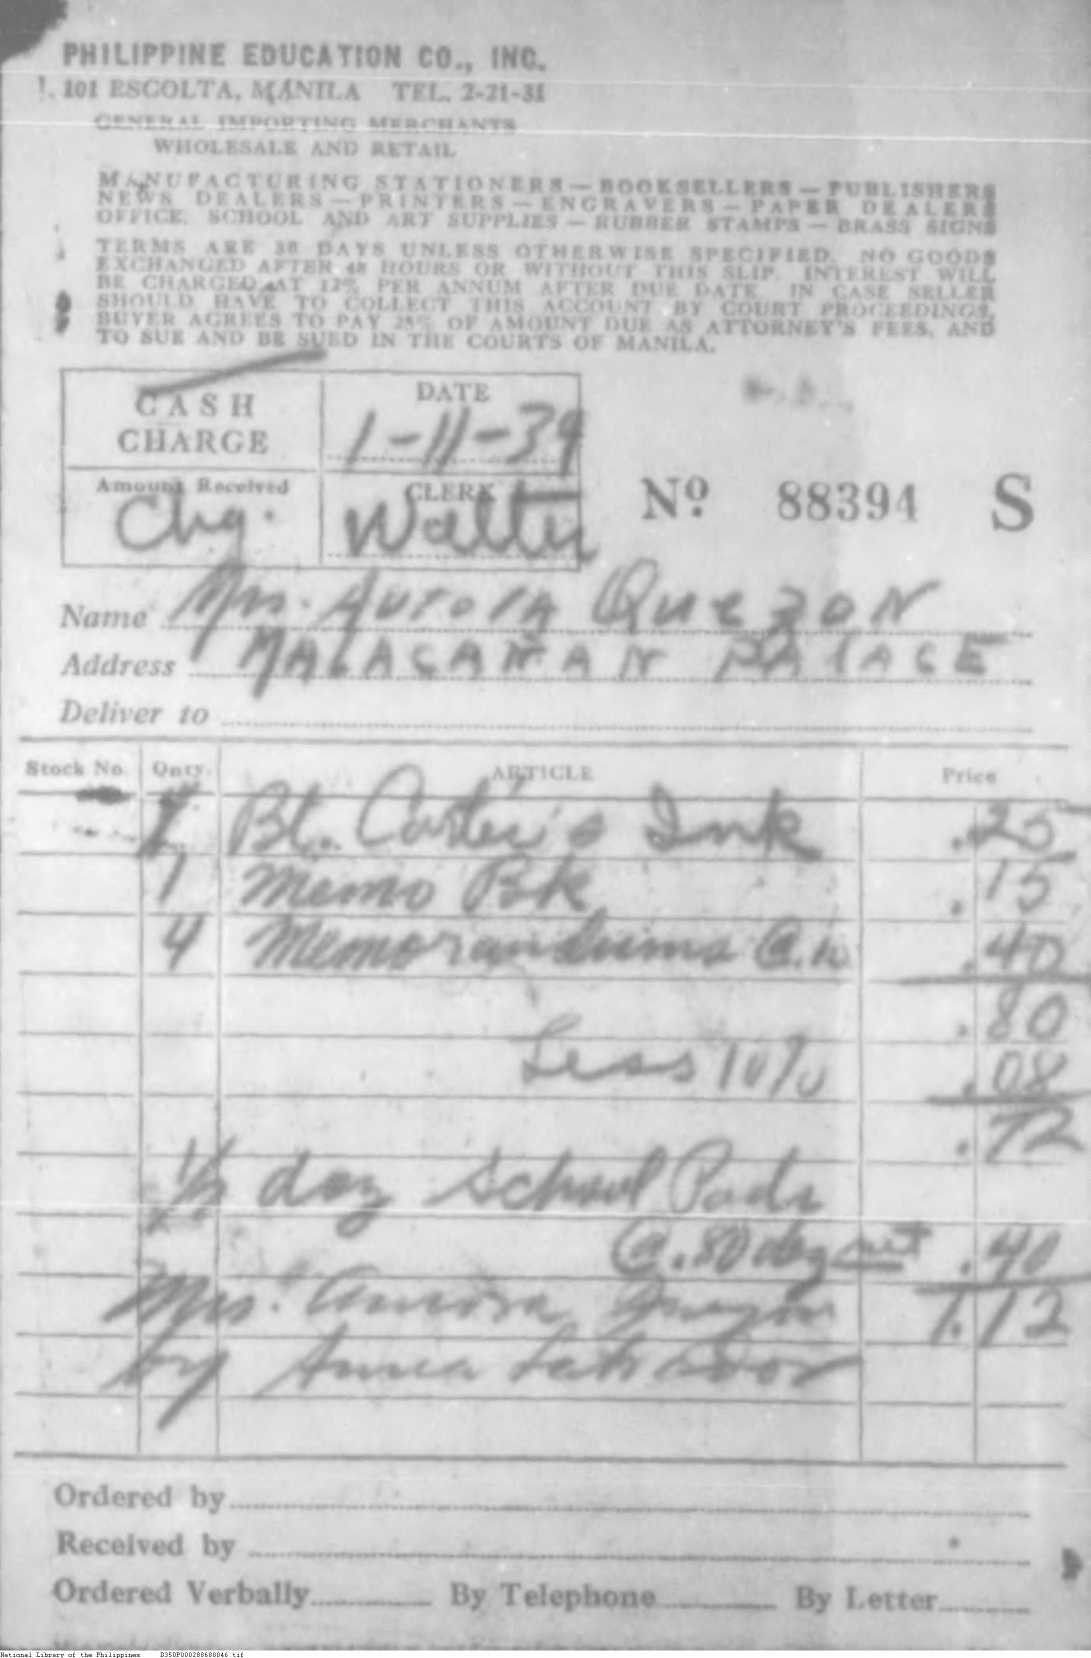 PHILIPPINE EDUCATION CO., INC.
101 ESCOLTA, MANILA TEL. 2-21-31
GENERAL IMPORTING MERCHANTS
WHOLESALE AND RETAIL
MANUFACTURING STATIONERS — BOOKSELLERS — PUBLISHERS
NEWS DEALERS — PRINTERS — ENGRAVERS — PAPER DEALERS
OFFICE, SCHOOL AND ART SUPPLIES — RUBBER STAMPS — BRASS SIGNS
TERMS ARE 30 DAYS UNLESS OTHERWISE SPECIFIED. NO GOODS
EXCHANGED AFTER 48 HOURS OR WITHOUT THIS SLIP. INTEREST WILL
BE CHARGED AT 12% PER ANNUM AFTER DUE DATE. IN CASE SELLER
SHOULD HAVE TO COLLECT THIS ACCOUNT BY COURT PROCEEDINGS,
BUYER AGREES TO PAY 25% OF AMOUNT DUE AS ATTORNEY'S FEES, AND
TO SUE AND BE SUED IN THE COURTS OF MANILA.
CASH
CHARGE
DATE
1-11-39
Amount Received
Chg.
CLERK
Walter
Nº 88394 S
Name Mrs. AURORA QUEZON
Address MALACAÑAN PALACE
Deliver to
Stock No. Qnty. ARTICLE Price
Bt. Carter's Ink .25
1 Memo Bk .15
4 Memorandums @.10 .40
.80
Less 10% .08
.72
1/2 doz School Pads
@ .80 doz net .40
Mrs. Aurora Quezon 1.12
by Anna
Ordered by
Received by
Ordered Verbally By Telephone By Letter
National Library of the Philippines D350P000288680046.tif